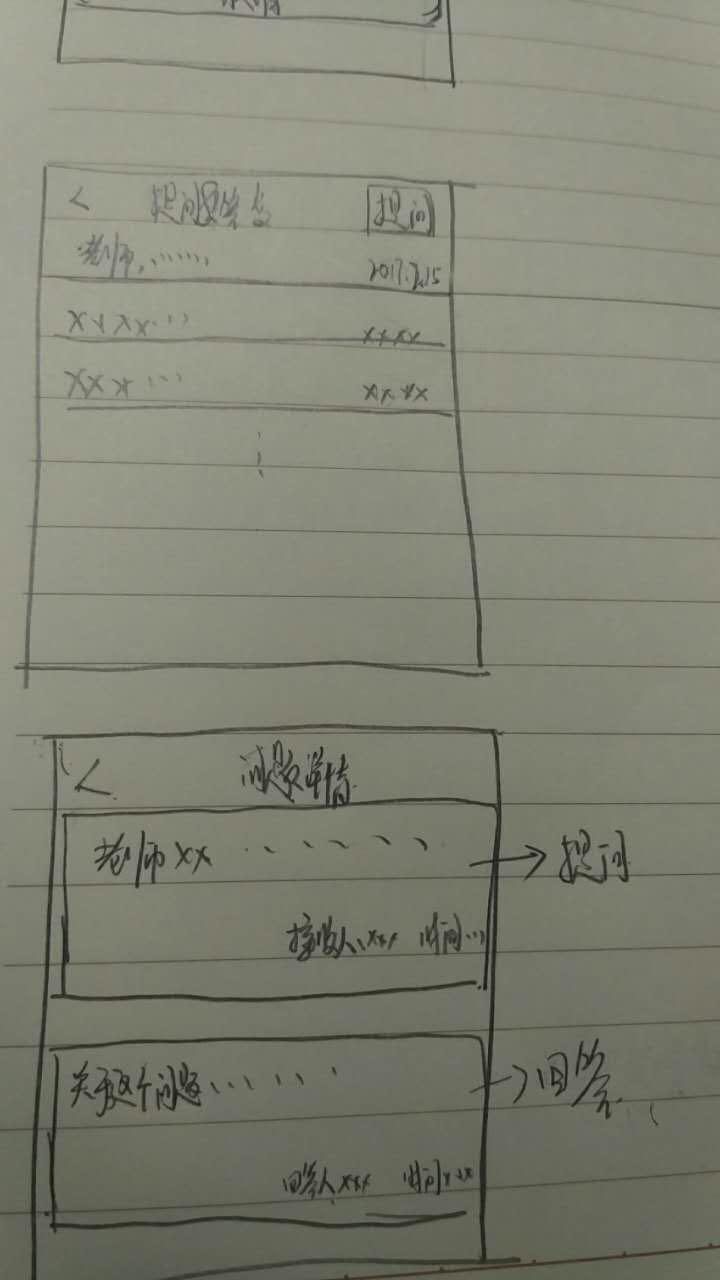 < 提问及答复 提问
老师,…… 2017.7.15
XXXX… XXXX
XXX… XXXX
< 问题详情
老师XX ······ → 提问
接收人:XXX 时间…
关于这个问题…… → 回答
回答人XXX 时间XXX